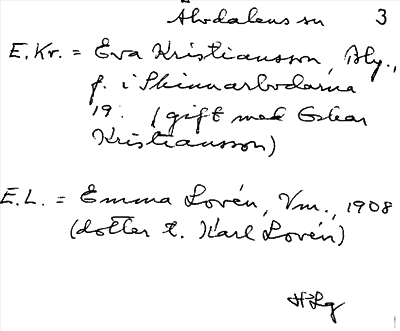 Älvdalens sn 3
E. Kr. = Eva Kristiansson, Äly.,
f. i Skinnarbodarna
19: (gift med Oskar
Kristiansson)
E. L. = Emma Lovén, Vm., 1908
(dotter t. Karl Lovén)